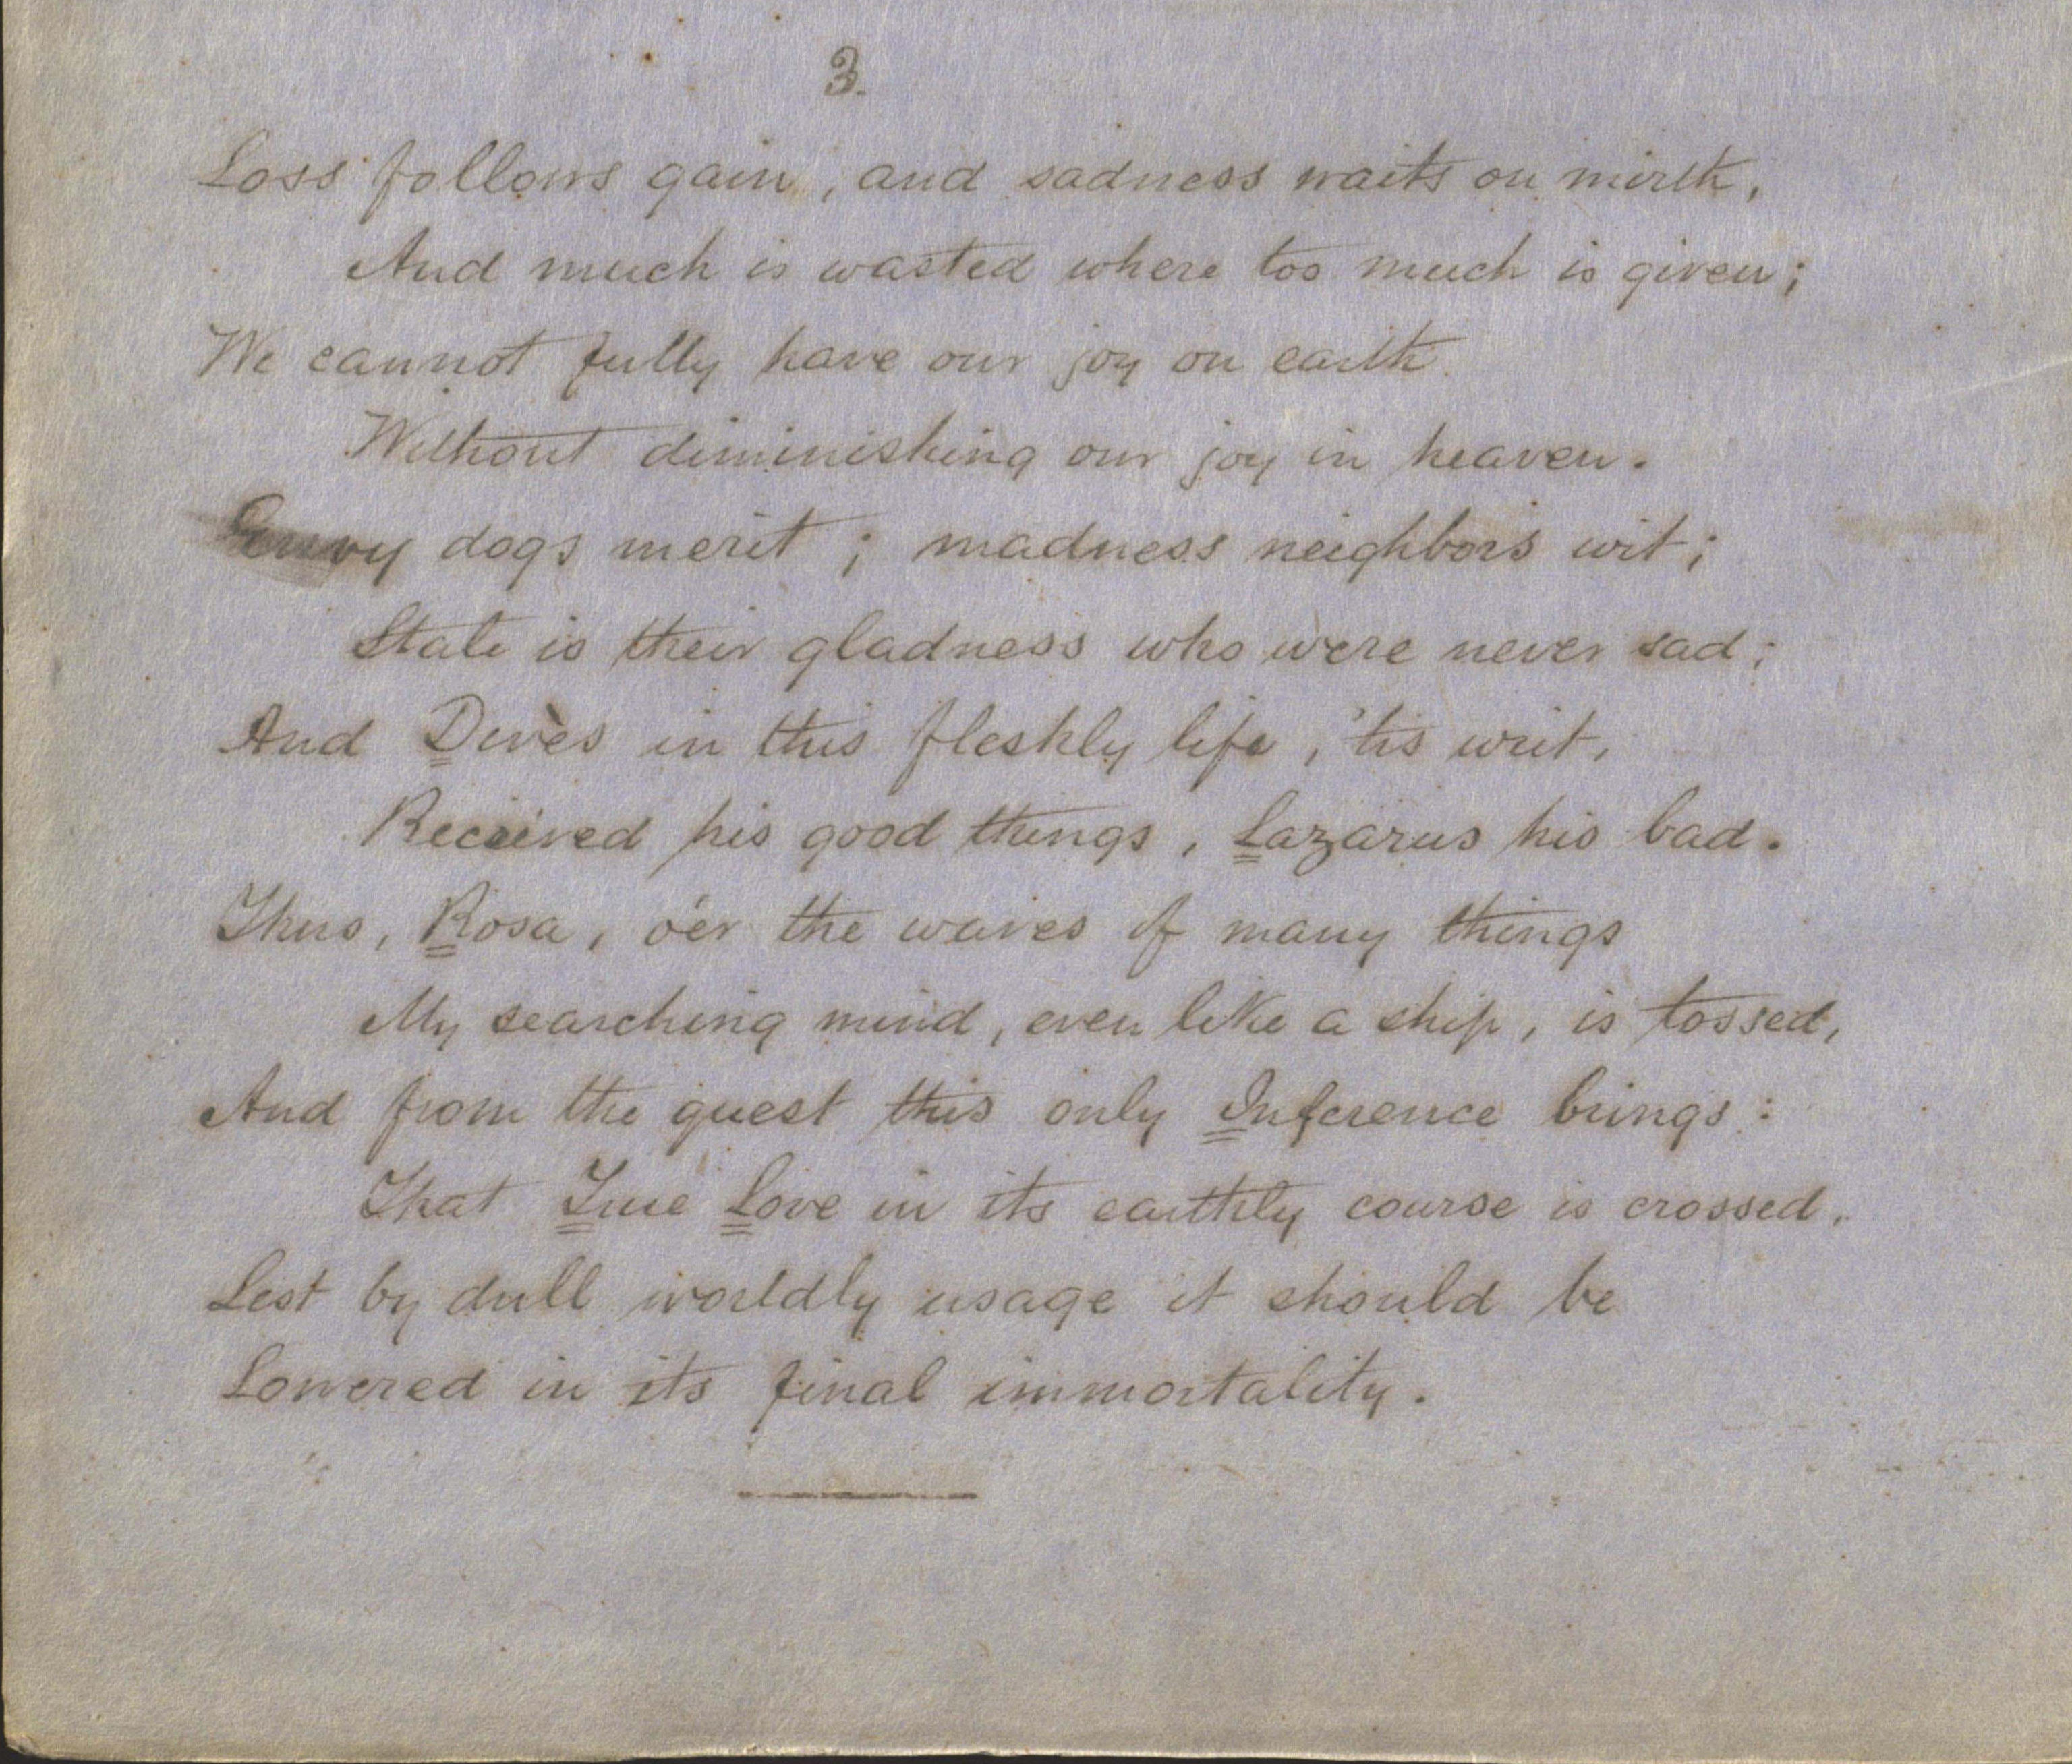 3.
Loss follows gain, and sadness waits on mirth,
And much is wasted where too much is given;
We cannot fully have our joy on earth
Without diminishing our joy in heaven.
Envy dogs merit; madness neighbors wit;
Stale is their gladness who were never sad;
And Divès in this fleshly life, 'tis writ,
Received his good things, Lazarus his bad.
Thus, Rosa, o'er the waves of many things
My searching mind, even like a ship, is tossed,
And from the quest this only Inference brings:
That True Love in its earthly course is crossed,
Lest by dull worldly usage it should be
Lowered in its final immortality.